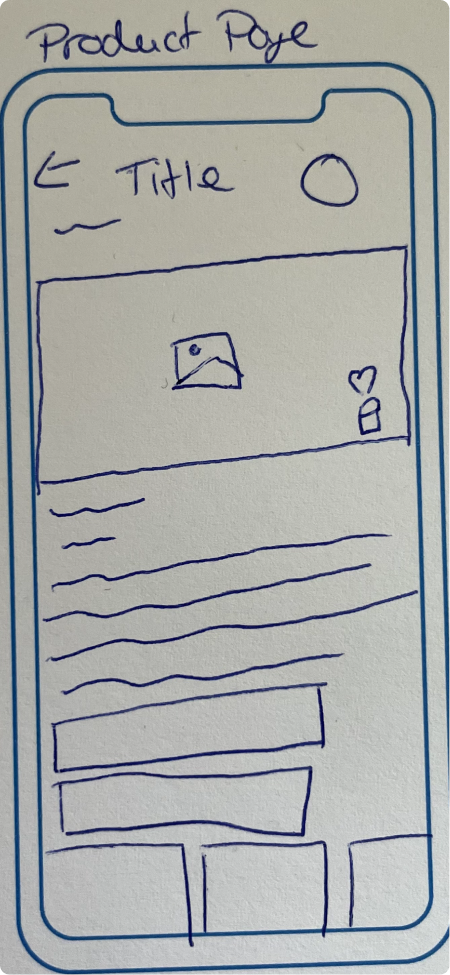 Product Page
Title